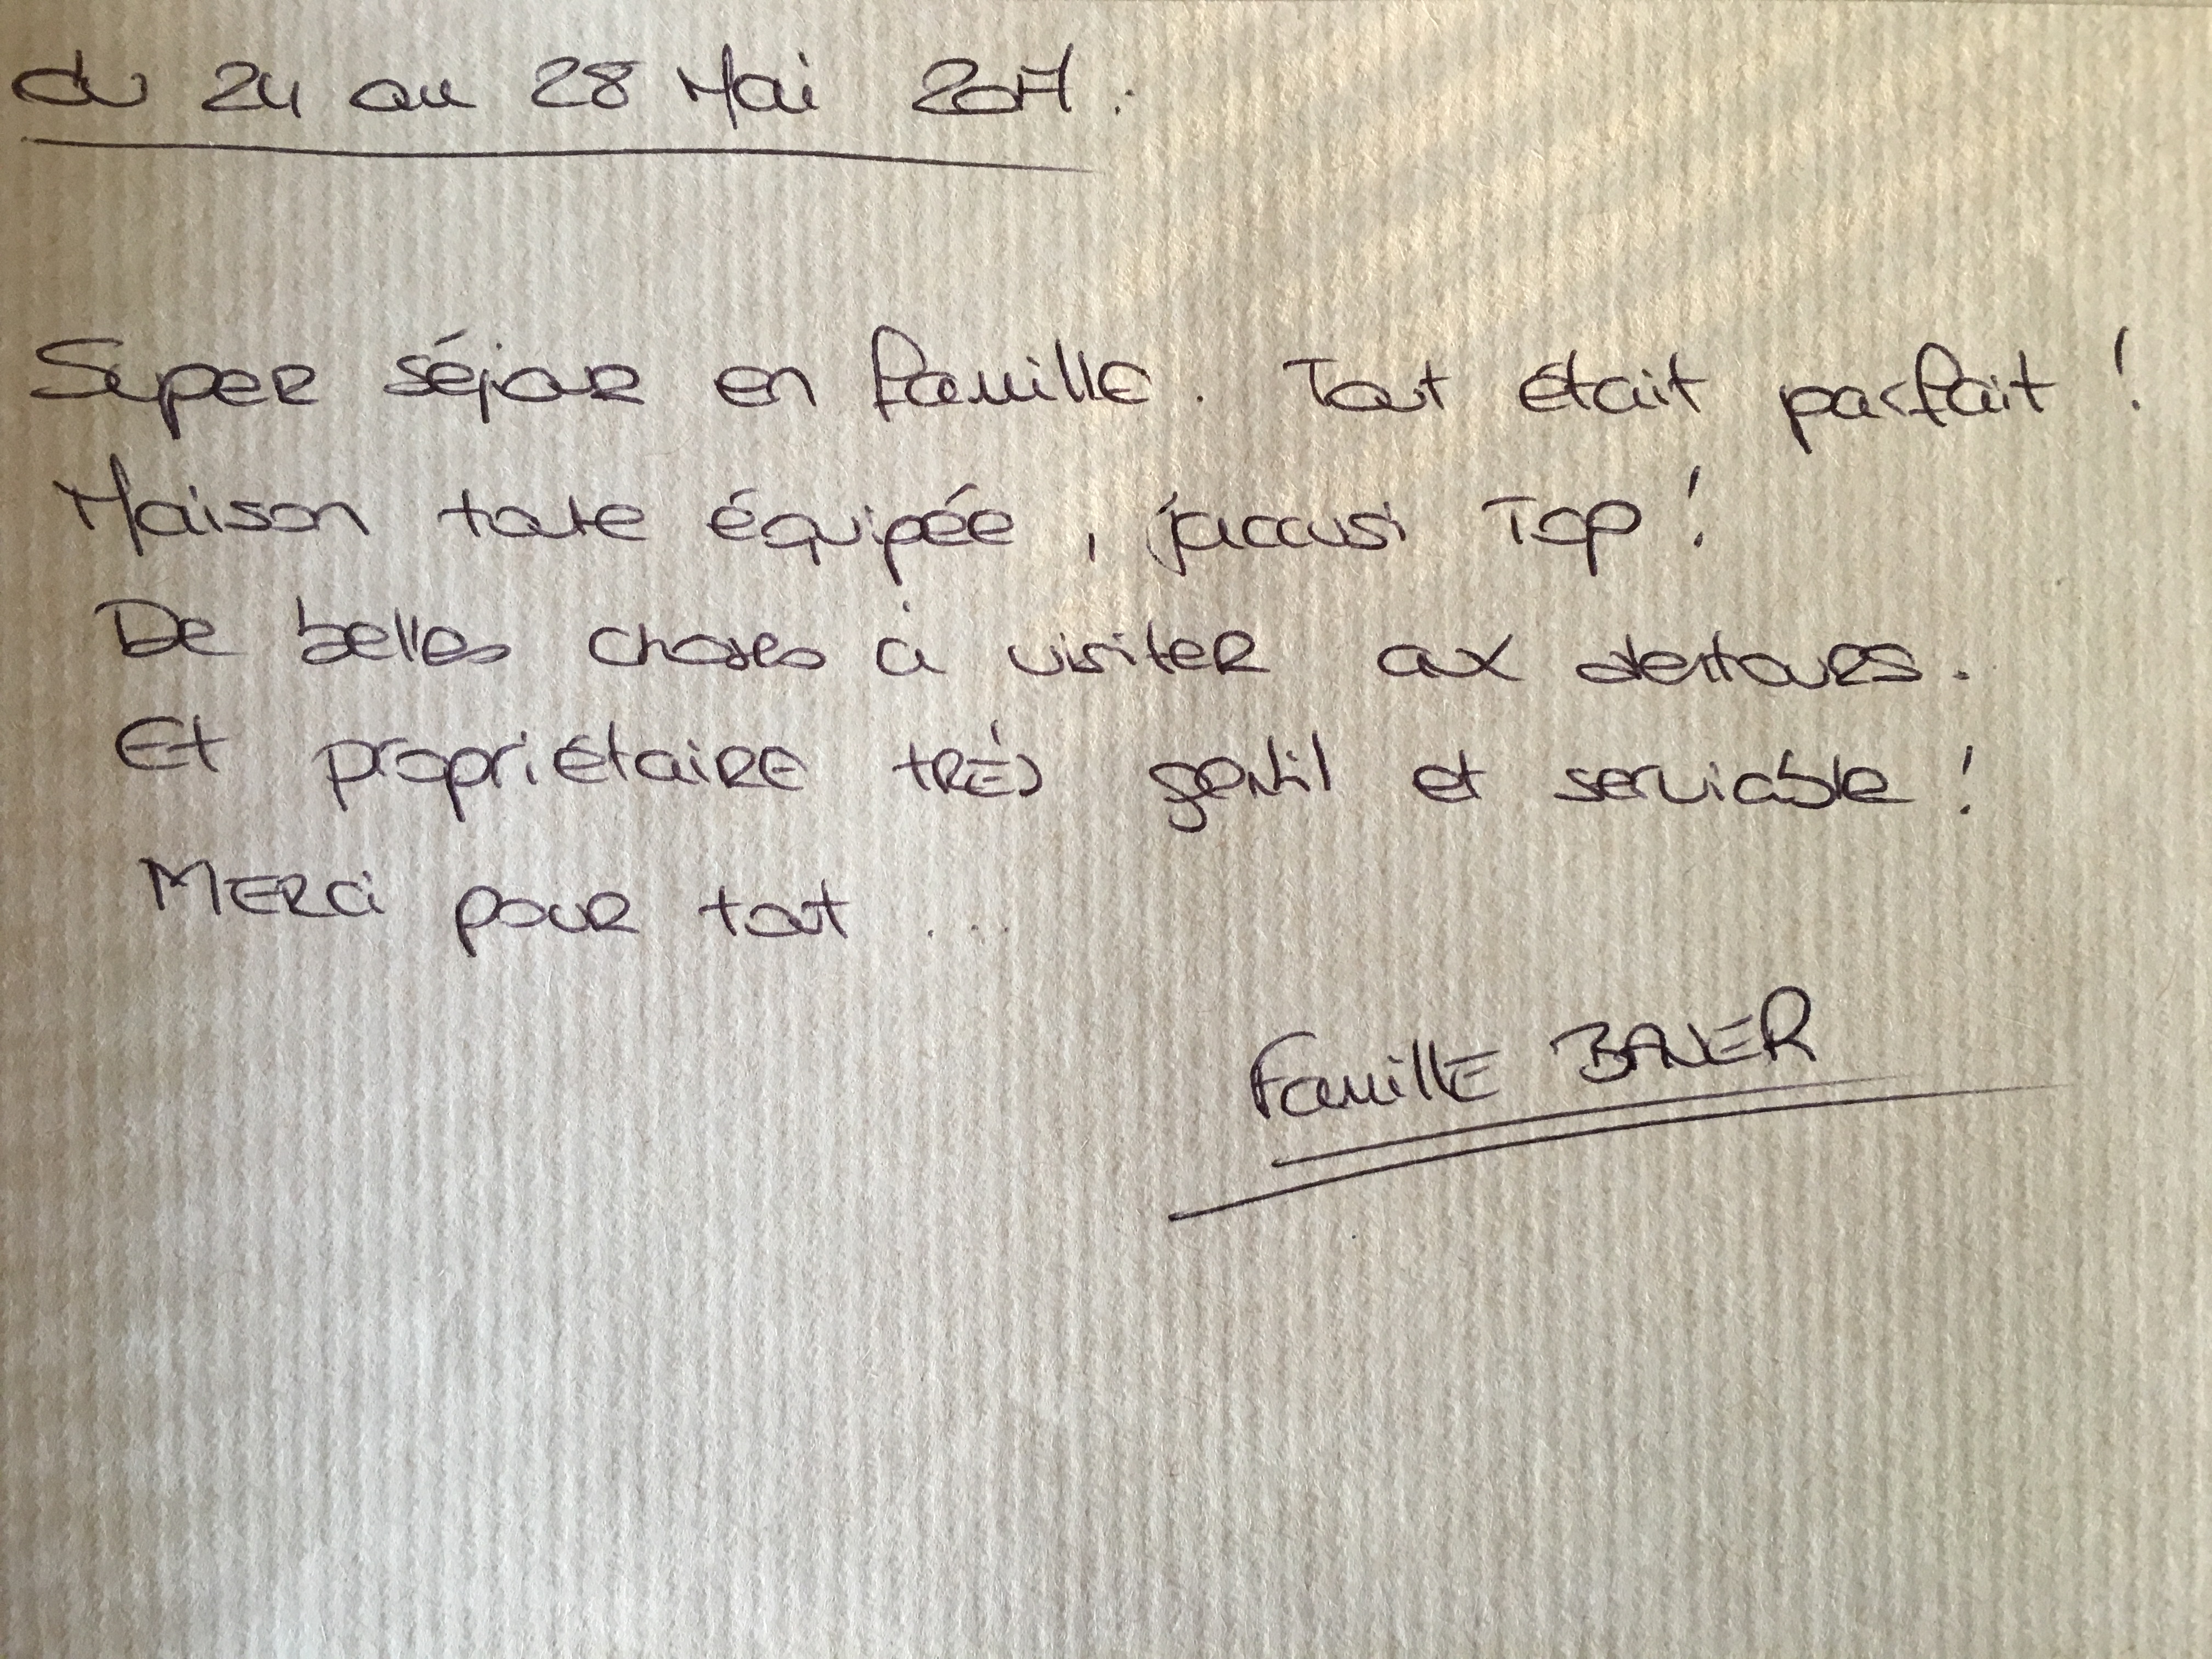 du 24 au 28 Mai 2017 :
Super séjour en famille. Tout était parfait !
Maison toute équipée, jaccusi Top !
De belles choses à visiter aux alentours.
Et propriétaire très gentil et serviable !
MERCi pour tout ...
Famille BAUER